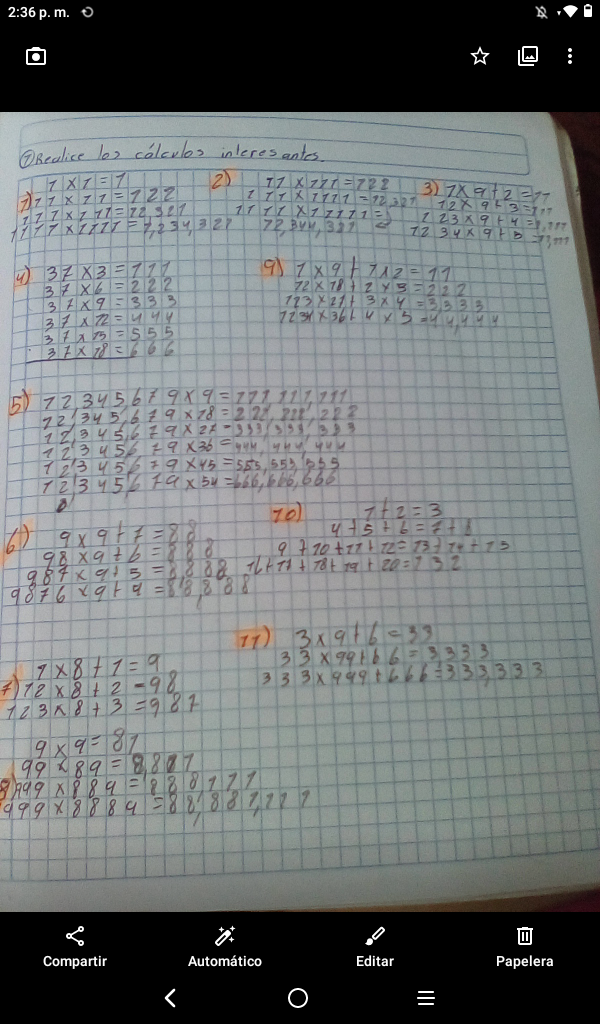 2:36 p. m.
① Realice los cálculos interesantes.
1) 1 x 1 = 1
11 x 11 = 122
111 x 111 = 12,321
1111 x 1111 = 1,234,321
2) 11 x 111 = 122
111 x 1111 = 12,321
1111 x 11111 =
12,344,321
3) 1 x 9 + 2 = 11
12 x 9 + 3 = 111
123 x 9 + 4 = 1,111
1234 x 9 + 5 = 11,111
4) 37 x 3 = 111
37 x 6 = 222
37 x 9 = 333
37 x 12 = 444
37 x 15 = 555
37 x 18 = 666
9) 1 x 9 + 1 x 2 = 11
12 x 18 + 2 x 3 = 222
123 x 27 + 3 x 4 = 3,333
1234 x 36 + 4 x 5 = 44,444
5) 12345,679 x 9 = 111,111,111
12,345,679 x 18 = 222,222,222
12,345,679 x 27 = 333,333,333
12,345,679 x 36 = 444,444,444
12,345,679 x 45 = 555,555,555
12,345,679 x 54 = 666,666,666
6) 9 x 9 + 7 = 88
98 x 9 + 6 = 888
987 x 9 + 5 = 8888
9876 x 9 + 4 = 88,888
10) 1 + 2 = 3
4 + 5 + 6 = 7 + 8
9 + 10 + 11 + 12 = 13 + 14 + 15
16 + 17 + 18 + 19 + 20 = 132
11) 3 x 9 + 6 = 33
33 x 99 + 66 = 3333
333 x 999 + 666 = 333,333
7) 1 x 8 + 1 = 9
12 x 8 + 2 = 98
123 x 8 + 3 = 987
8) 9 x 9 = 81
99 x 89 = 8,811
999 x 889 = 888111
9999 x 8889 = 88,881,111
Compartir
Automático
Editar
Papelera